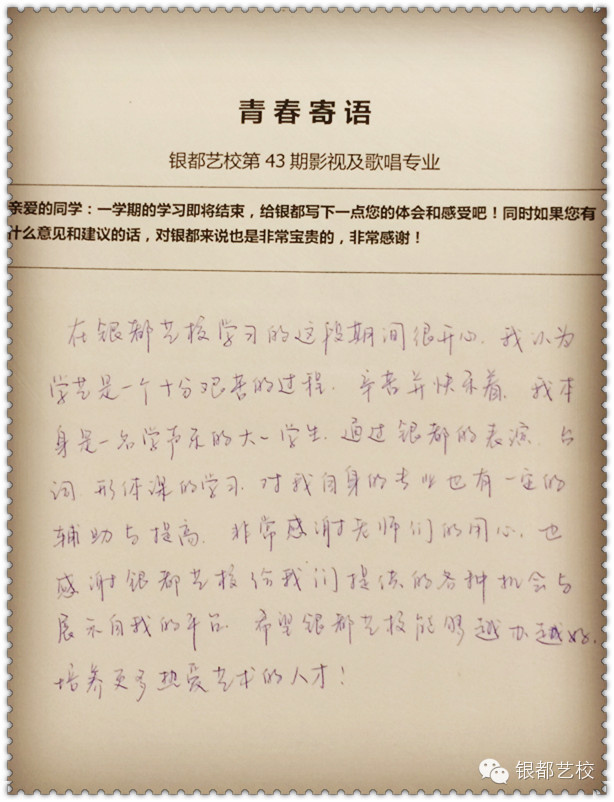 青春寄语
银都艺校第43期影视及歌唱专业
亲爱的同学：一学期的学习即将结束，给银都写下一点您的体会和感受吧！同时如果您有
什么意见和建议的话，对银都来说也是非常宝贵的，非常感谢！
在银都艺校学习的这段期间很开心，我认为
学艺是一个十分艰苦的过程，辛苦并快乐着。我本
身是一名学声乐的大一学生，通过银都的表演、台
词、形体课的学习，对我自身的专业也有一定的
辅助与提高。非常感谢老师们的用心，也
感谢银都艺校给我们提供的各种机会与
展示自我的平台。希望银都艺校能够越办越好，
培养更多热爱艺术的人才！
银都艺校